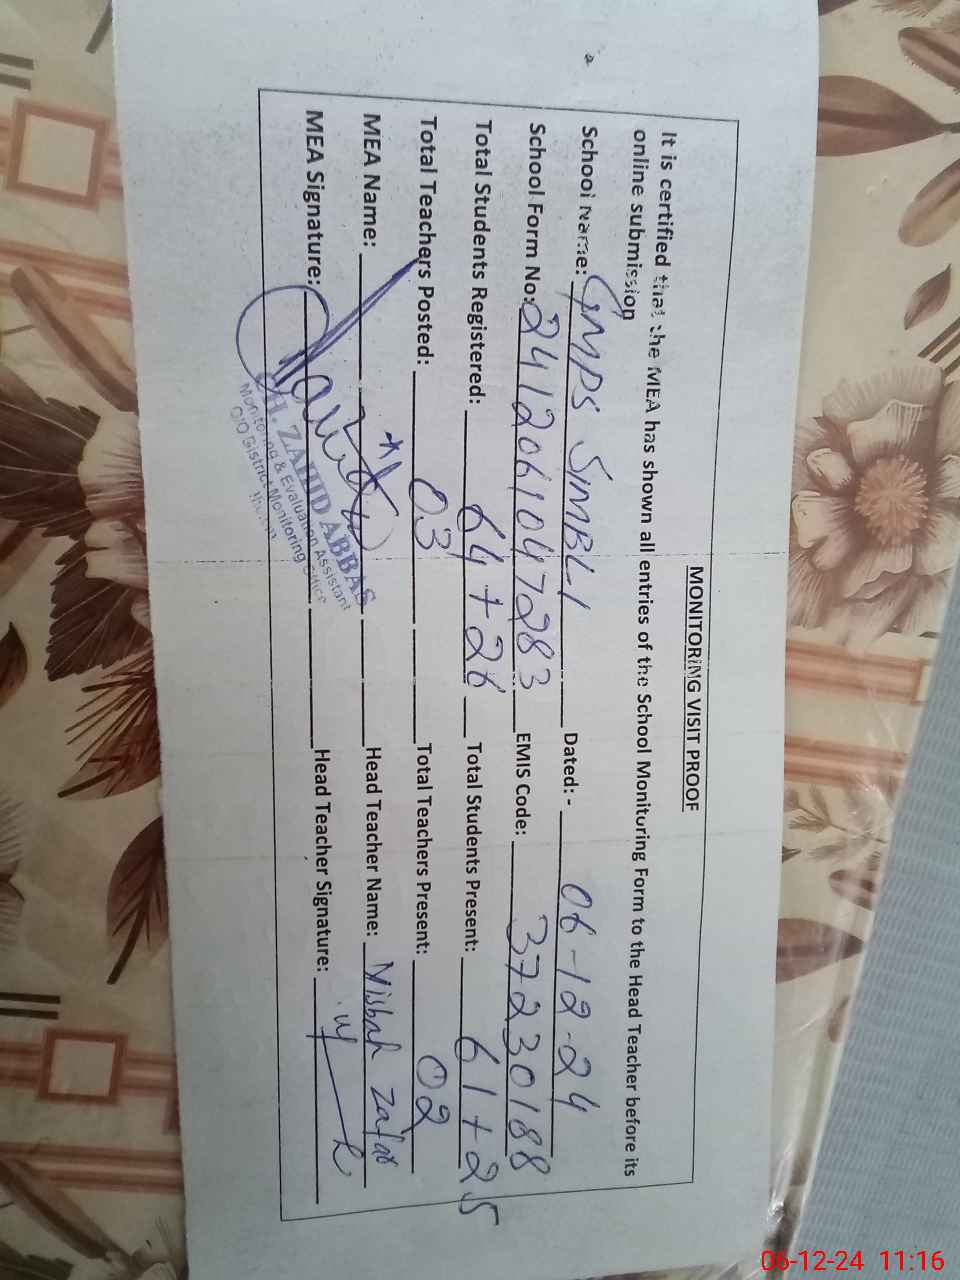 MONITORING VISIT PROOF
It is certified that the MEA has shown all entries of the School Monitoring Form to the Head Teacher before its
online submission
School Name: GMPS SIMBLI Dated:- 06-12-24
School Form No: 2412061047283 EMIS Code: 37230188
Total Students Registered: 64+26 Total Students Present: 61+25
Total Teachers Posted: 03 Total Teachers Present: 02
MEA Name: Head Teacher Name: Misbah Zafar
MEA Signature: Head Teacher Signature:
CH. ZAHID ABBAS
Monitoring & Evaluation Assistant
O/O District Monitoring Office
06-12-24 11:16